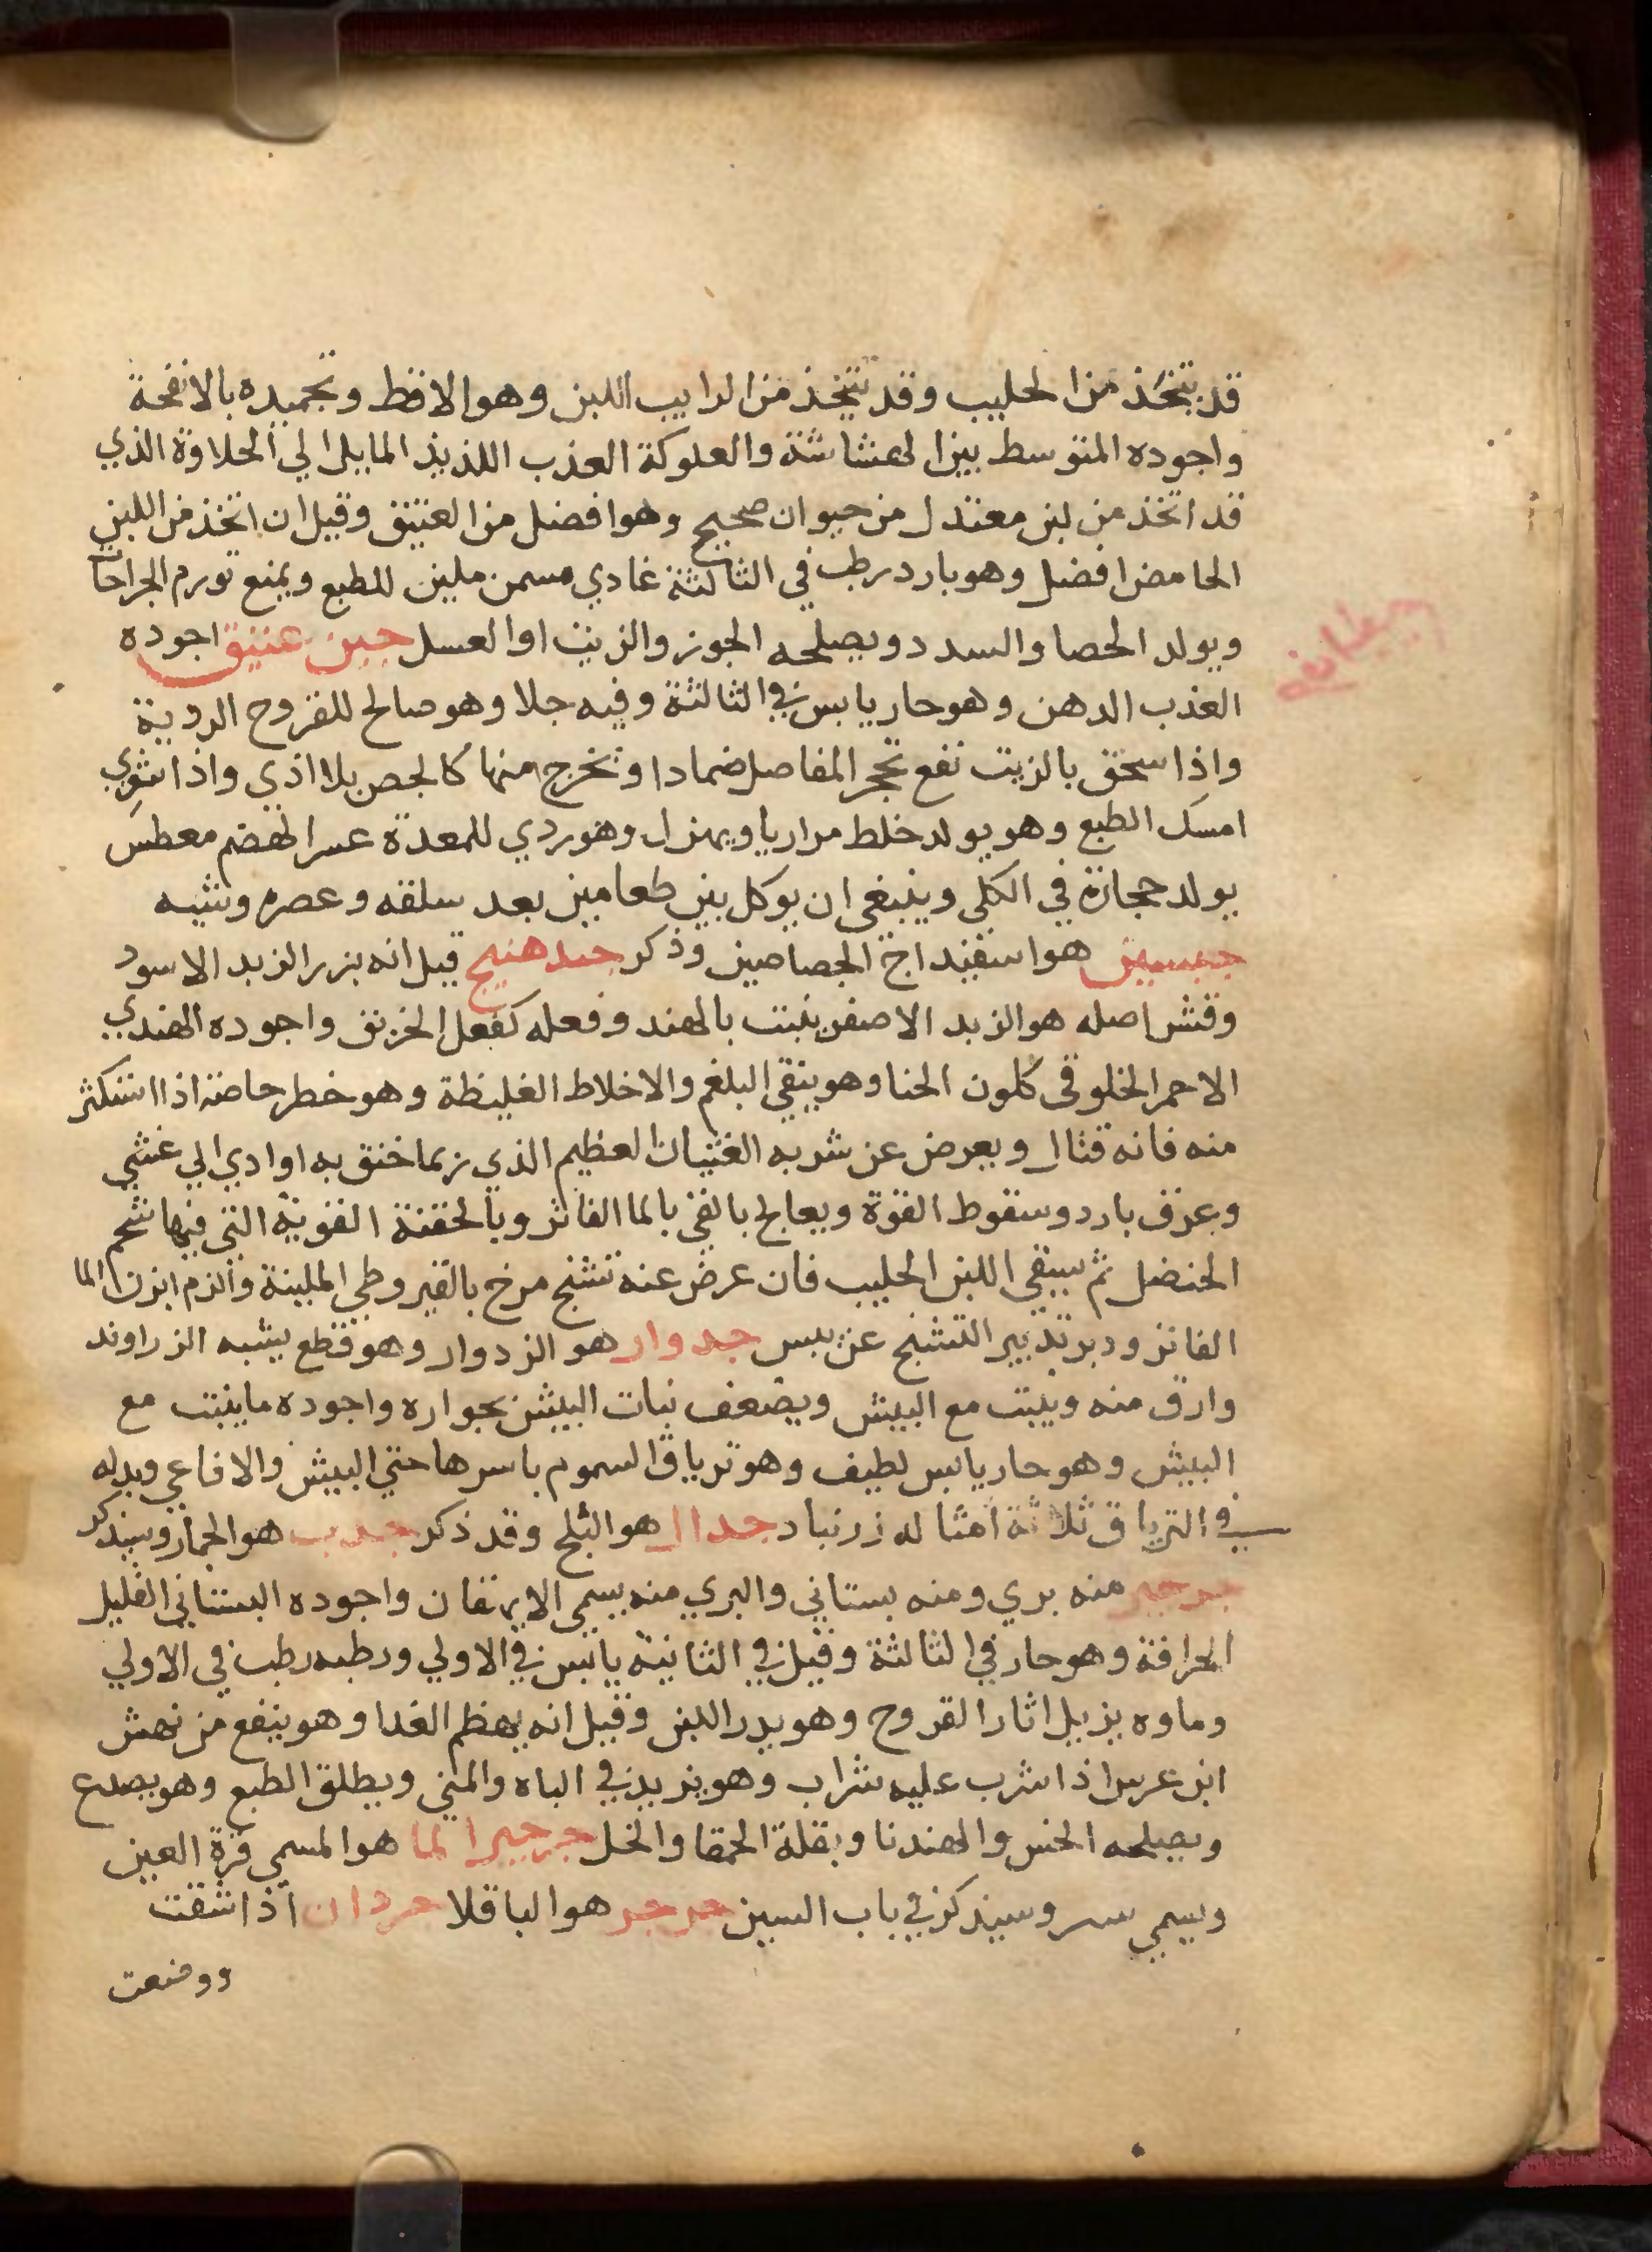 قد يتخذ من الحليب وقد يتخذ من الرايب اللبن وهو الاقط وتجميده بالانفحة
واجوده المتوسط بين الهشاشة والعلوكة العذب اللذيذ المايل الي الحلاوة الذي
قد اتخذ من لبن معتدل من حيوان صحيح وهو افضل من العتيق وقيل ان اتخذ من اللبن
الحامض افضل وهو بارد رطب في الثالثة غادي مسمن ملين للطبع ويمنع تورم الجراحات
ويولد الحصا والسدد ويصلحه الجوز والزيت او العسل جبن عتيق اجوده
العذب الدهن وهو حار يابس في الثالثة وفيه جلا وهو صالح للقروح الردية
واذا سحق بالزيت نفع تحجر المفاصل ضمادا وتخرج منها كالجص بلا اذي واذا شوي
امسك الطبع وهو يولد خلط مراريا ويهزل وهو ردي للمعدة عسر الهضم معطس
يولد حجارة في الكلي وينبغي ان يوكل بين طعامين بعد سلقه وعصره وشيه
جبسين هو اسفيداج الجصاصين وذكر جبلهنج قيل انه بزر الزبد الاسود
وقشر اصله هو الزبد الاصفر ينبت بالهند وفعله كفعل الخربق واجوده الهندي
الاحمر الخلوقي كلون الحنا وهو ينقي البلغم والاخلاط الغليظة وهو خطر خاصة اذا استكثر
منه فانه قتال ويعرض عن شربه الغثيان العظيم الذي ربما خنق به او ادي الي غشي
وعرق بارد وسقوط القوة ويعالج بالقي بالما الفاتر وبالحقنة القوية التي فيها شحم
الحنضل ثم يسقي اللبن الحليب فان عرض عنه تشنج مرخ بالقيروطي الملينة والزم ابزن الما
الفاتر ودبر تدبير التشنج عن يبس جدوار هو الزدوار وهو قطع يشبه الزراوند
وارق منه وينبت مع البيش ويضعف نبات البيش بجواره واجوده ما ينبت مع
البيش وهو حار يابس لطيف وهو ترياق السموم باسرها حتي البيش والافاعي وبدله
في الترياق ثلاثة امثاله زرنباد جدال هو البلح وقد ذكر جدب هو الجمار وسيذكر
جرجير منه بري ومنه بستاني والبري منه يسمي الايهقان واجوده البستاني القليل
الحرافة وهو حار في الثالثة وقيل في الثانية يابس في الاولي ورطبه رطب في الاولي
وماوه يزيل اثار القروح وهو يدر اللبن وقيل انه يهظم الغدا وهو ينفع من نهش
ابن عرس اذا شرب عليه شراب وهو يزيد في الباه والمني ويطلق الطبع وهو يصدع
ويصلحه الخس والهندبا وبقلة الحمقا والخل جرجير الما هو المسمي قرة العين
ويسمي سر وسيذكر في باب السين جرجر هو الباقلا جردان اذا شقت
ووضعت